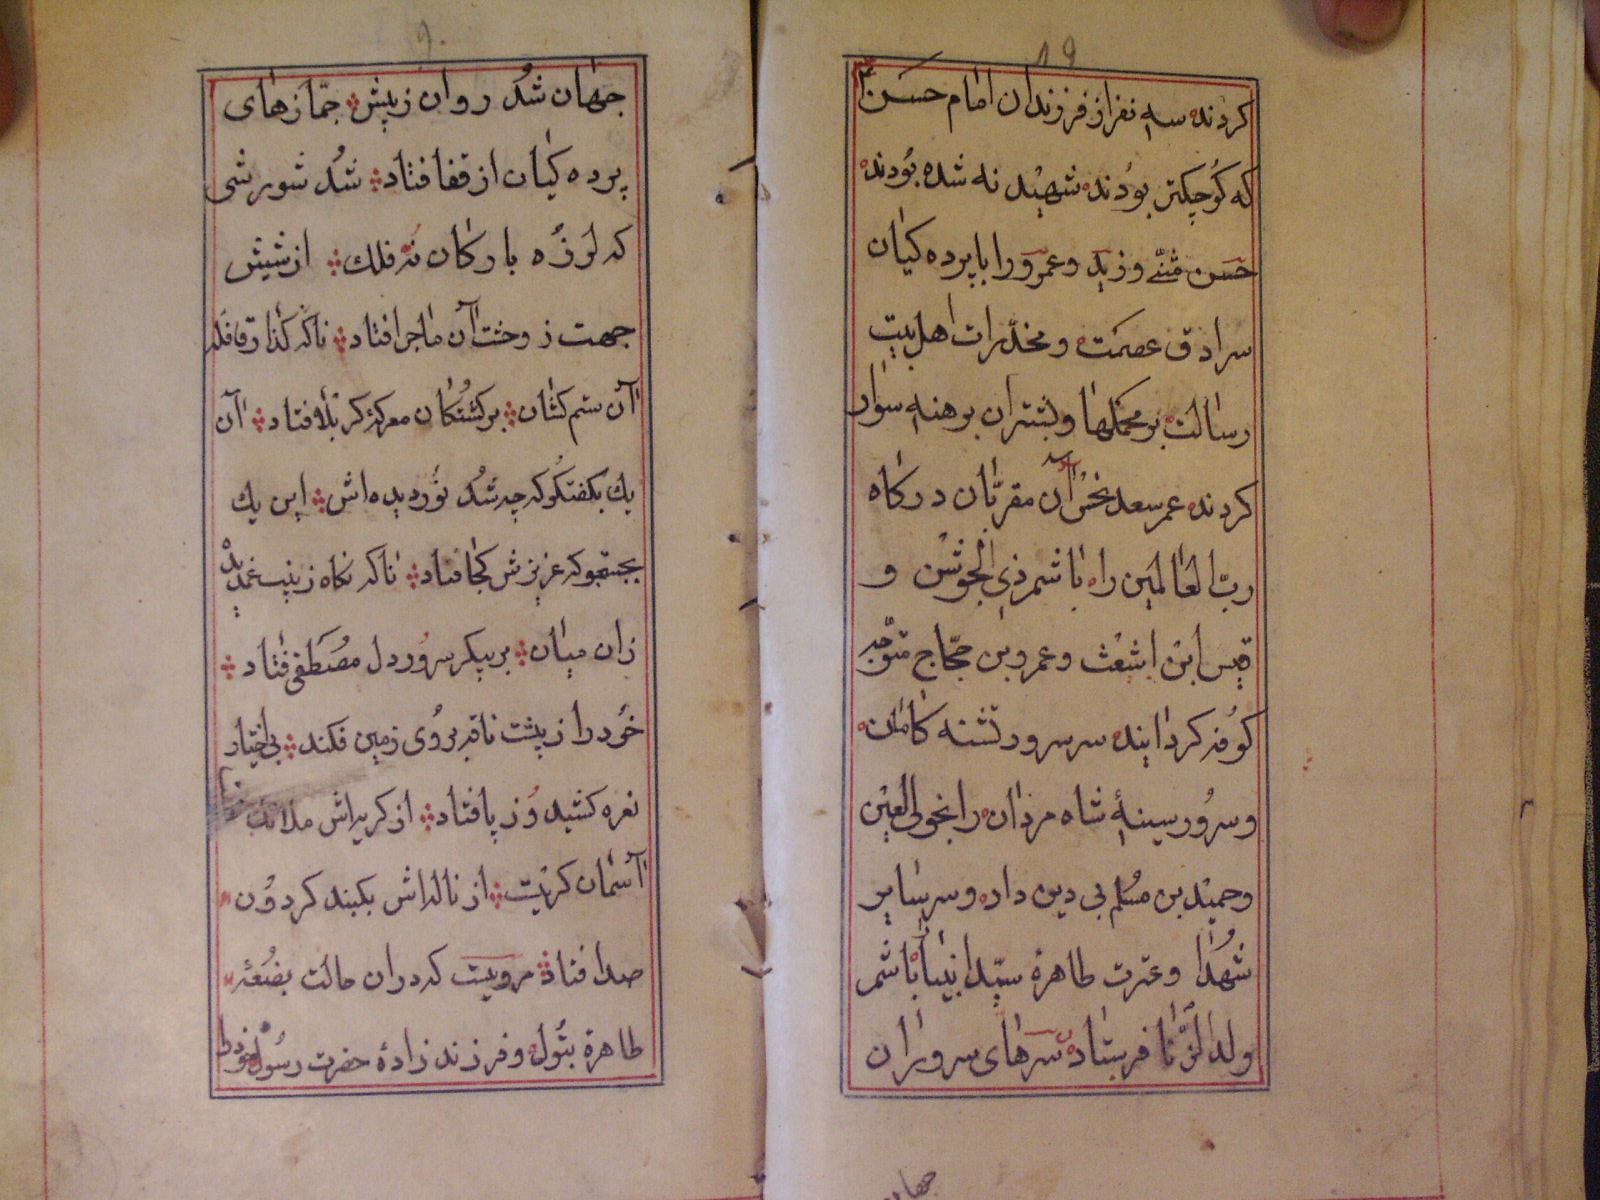 ٨٩
كردند سه نفر از فرزندان امام حسن ع
كه كوچكتر بودند شهيد نه شده بودند
حسن مثنّے و زيد و عمرو را با پرده كيان
سرادق عصمت و مخدّرات اهل بيت
رسالت بر محملها و بشتران برهنه سوار
كردند عمر سعد نحس آن مقرّبان درگاه
ربّ العالمين را با شمر ذي الجوشن و
قيس ابن اشعث و عمرو بن حجّاج متوّجه
كوفه گردانيد سر سرور تشنه كامان
و سرور سينهٔ شاه مردان را بخولى لعين
و حميد بن مسلم بي دين داد و سر ساير
شهدا و عترت طاهرهٔ سيّد انبيا با شمر
ولد الزّنا فرستاد سرهاى سروران
جهان
٩٠
جهان شد روان ز پيش جمّازهاى
پرده كيان از قفا فتاد شد شورشى
كه لرزه باركان نه فلك از شيش
جهت ز وحشت آن ماجرا فتاد ناگه گذار قافله
آن ستم كشان بر كشتگان معركهٔ كربلا فتاد آن
يك بگفتگو كه چه شد نور ديده اش اين يك
بجستجو كه عزيزش كجا فتاد ناگه نگاه زينب غمديده
زان ميان بر پيكر سرور دل مصطفى فتاد
خود را ز پشت ناقه بروى زمين فكند بى اختيار
نعره كشيد و ز پا فتاد از گريه اش ملائك
آسمان گريست از ناله اش بگنبد گردون
صدا فتاد مرويست كه در ان حالت بضعهٔ
طاهرهٔ بتول و فرزند زادهٔ حضرت رسول